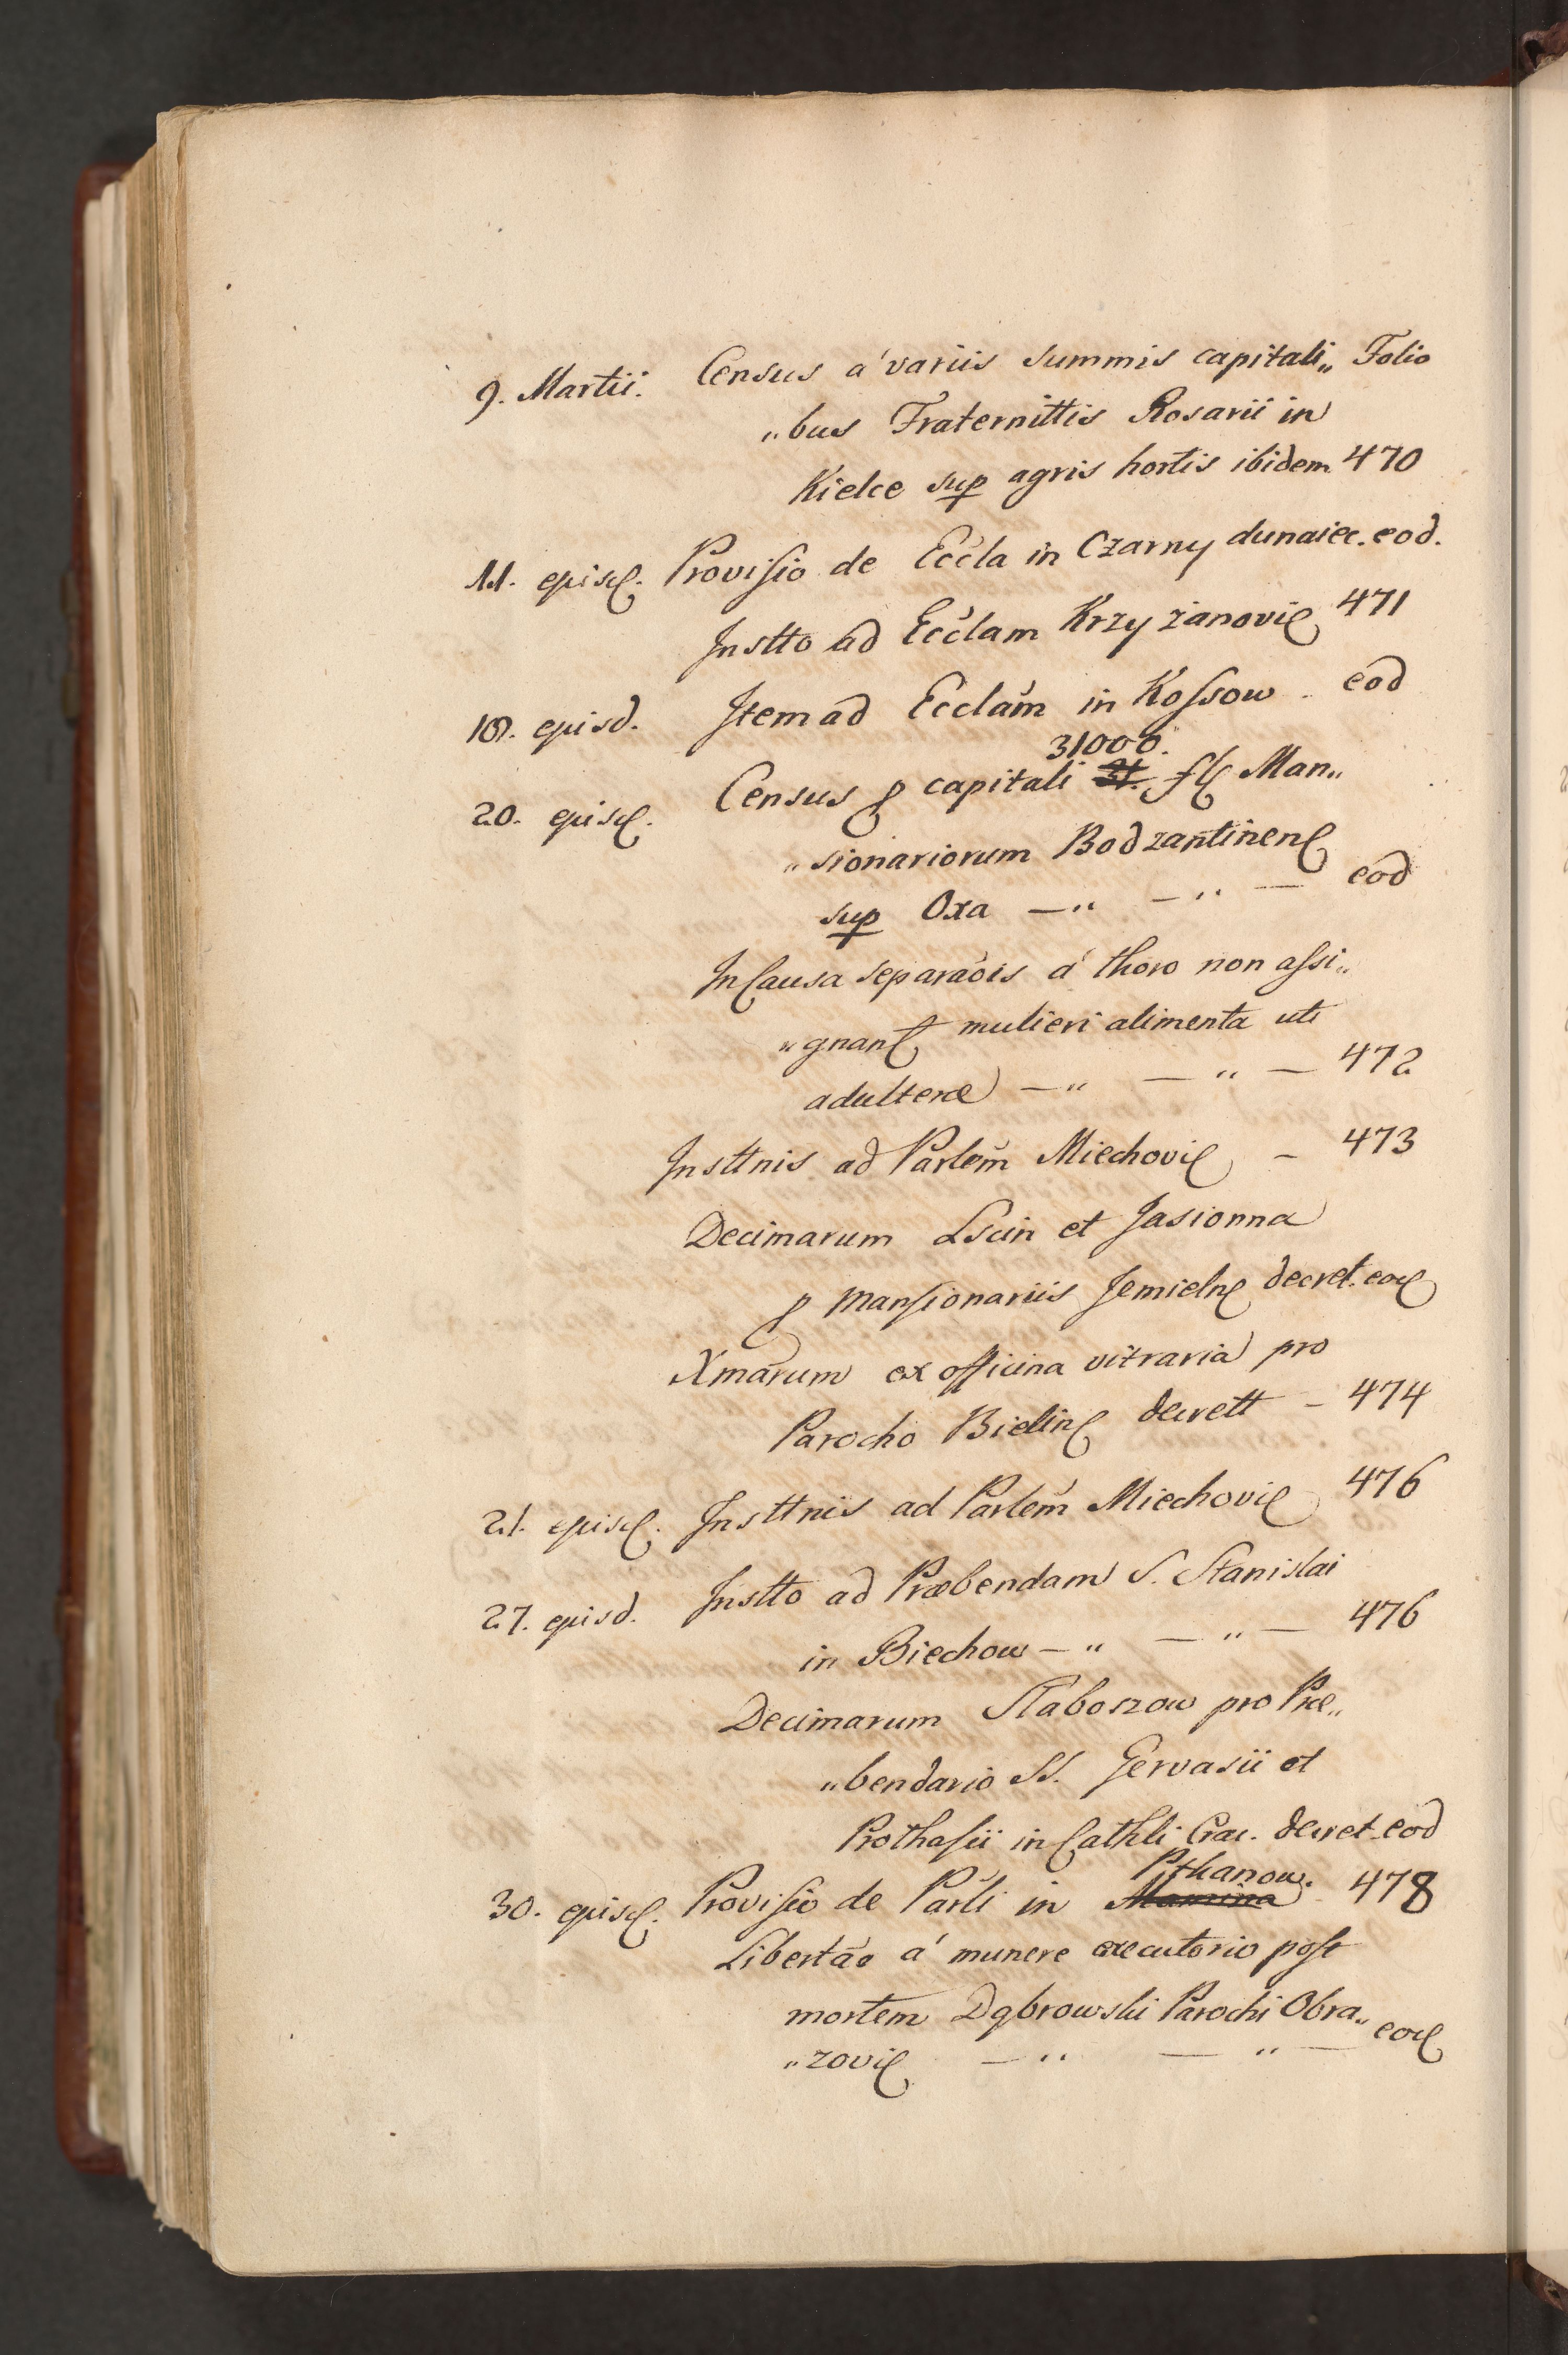 9. Martii. Census a' variis summis capitali„ Folio
„bus Fraternittis Rosarii in
Kielce sup agris hortis ibidem 470
11. episc. Provisio de Eccla in Czarny dunaiec. eod.
Instto ad Ecclam Krzyżanovic 471
18. ejusd. Item ad Ecclam in Kossow . eod
31000.
20. ejusd. Census p capitali 31. fl Man„
„sionariorum Bodzantinen
sup Oxa —„ —„ — eod
In Causa separaois a' thoro non assi„
„gnant mulieri alimenta uti
adulteræ —„ —„ — 472
Insttnis ad Parlem Miechovic – 473
Decimarum Lscin et Jasionna
p Mansionariis Jemieln decret. eod
Xmarum ex officina vitraria pro
Parocho Bielin decrett – 474
21. ejusd. Insttnis ad Parlem Miechovic 476
27. ejusd. Instto ad Præbendam S. Stanislai
in Biechow —„ —„ — 476
Decimarum Slaboszow pro Præ„
„bendario SS. Gervasii et
Prothasii in Cathli Crac. decret. eod
Pthanow.
30. ejusd. Provisio de Parli in Mamina 478
Libertao a' munere executorio post
mortem Dąbrowski Parochi Obra„
„zovic —„ —„ — eod